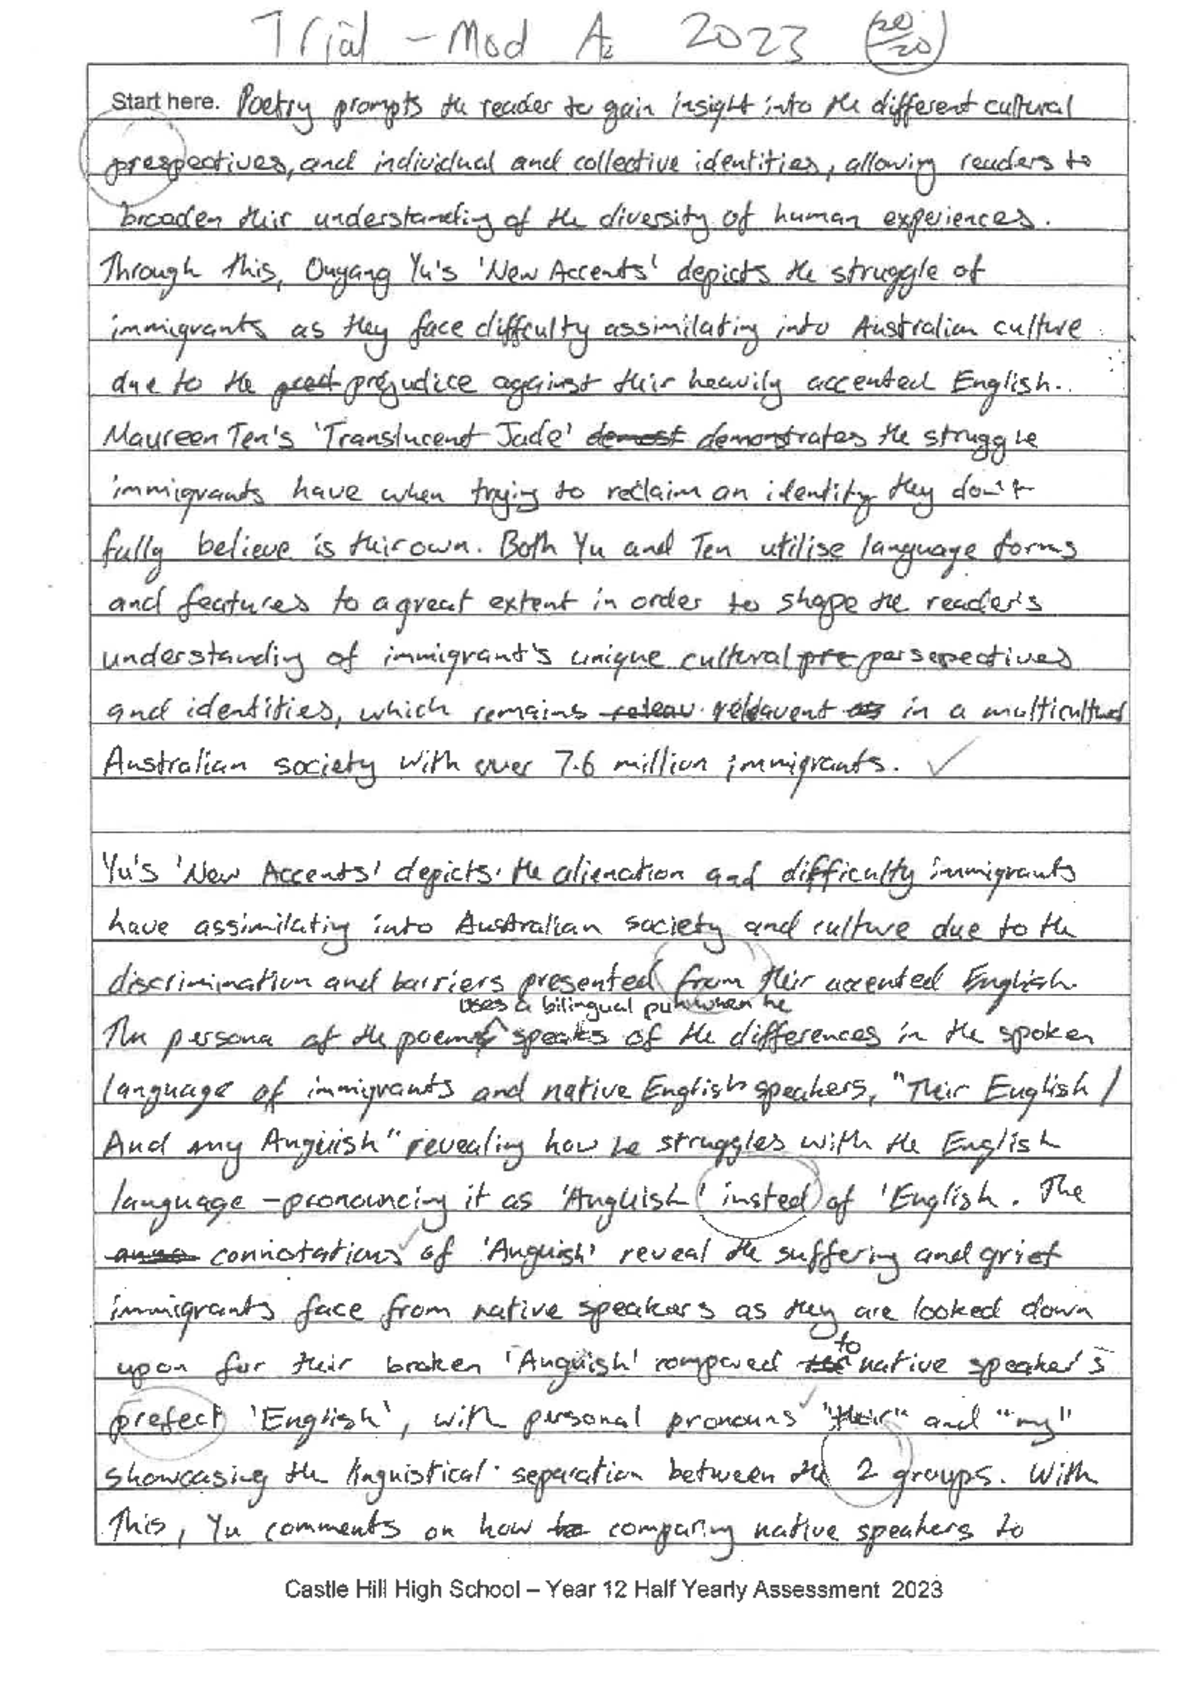 Trial - Mod A 2023 20/20
Start here. Poetry prompts the reader to gain insight into the different cultural
prespectives, and individual and collective identities, allowing readers to
broaden their understanding of the diversity of human experiences.
Through this, Ouyang Yu's 'New Accents' depicts the struggle of
immigrants as they face difficulty assimilating into Australian culture
due to the prejudice against their heavily accented English.
Maureen Ten's 'Translucent Jade' demonstrates the struggle
immigrants have when trying to reclaim an identity they don't
fully believe is their own. Both Yu and Ten utilise language forms
and features to a great extent in order to shape the reader's
understanding of immigrant's unique cultural persepectives
and identities, which remains in a multicultural
Australian society with over 7.6 million immigrants. ✓
Yu's 'New Accents' depicts the alienation and difficulty immigrants
have assimilating into Australian society and culture due to the
discrimination and barriers presented from their accented English.
uses a bilingual pun when he
The persona of the poem speaks of the differences in the spoken
language of immigrants and native English speakers, "Their English /
And my Angüish" revealing how he struggles with the English
language - pronouncing it as 'Angüish' insted of 'English. The
connotations of 'Anguish' reveal the suffering and grief
immigrants face from native speakers as they are looked down
to
upon for their broken 'Angüish' compared native speaker's
prefect 'English', with personal pronouns "their" and "my"
showcasing the linguistical separation between the 2 groups. With
this, Yu comments on how comparing native speakers to
Castle Hill High School – Year 12 Half Yearly Assessment 2023